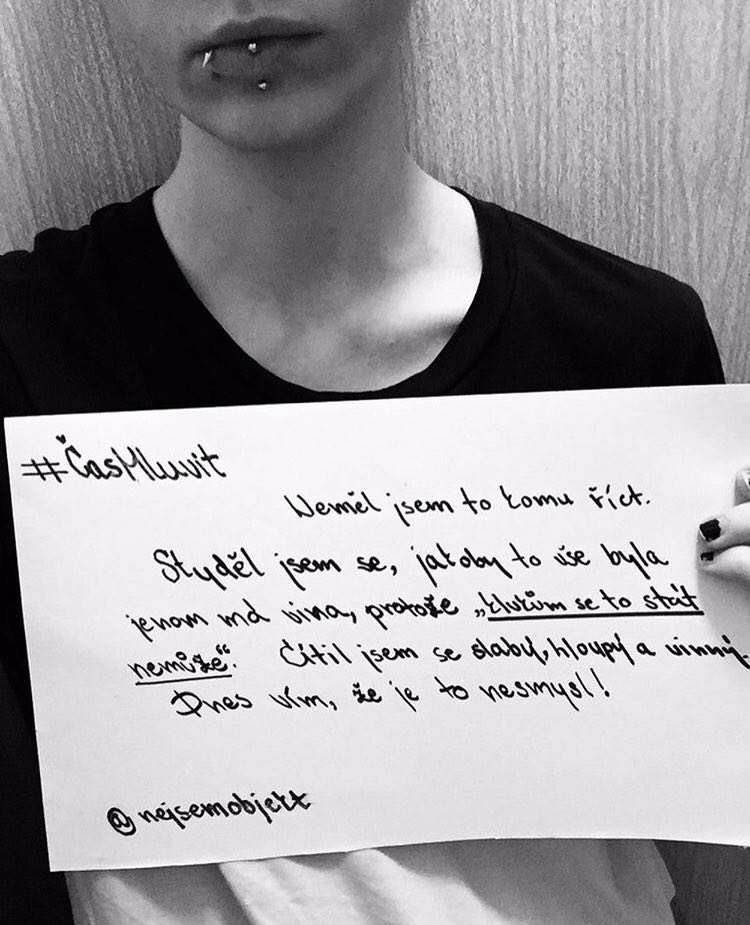 #ČasMluvit
Neměl jsem to komu říct.
Styděl jsem se, jakoby to vše byla
jenom má vina, protože „klukům se to stát
nemůže“. Cítil jsem se slabý, hloupý a vinný.
Dnes vím, že je to nesmysl!
@nejsemobjekt